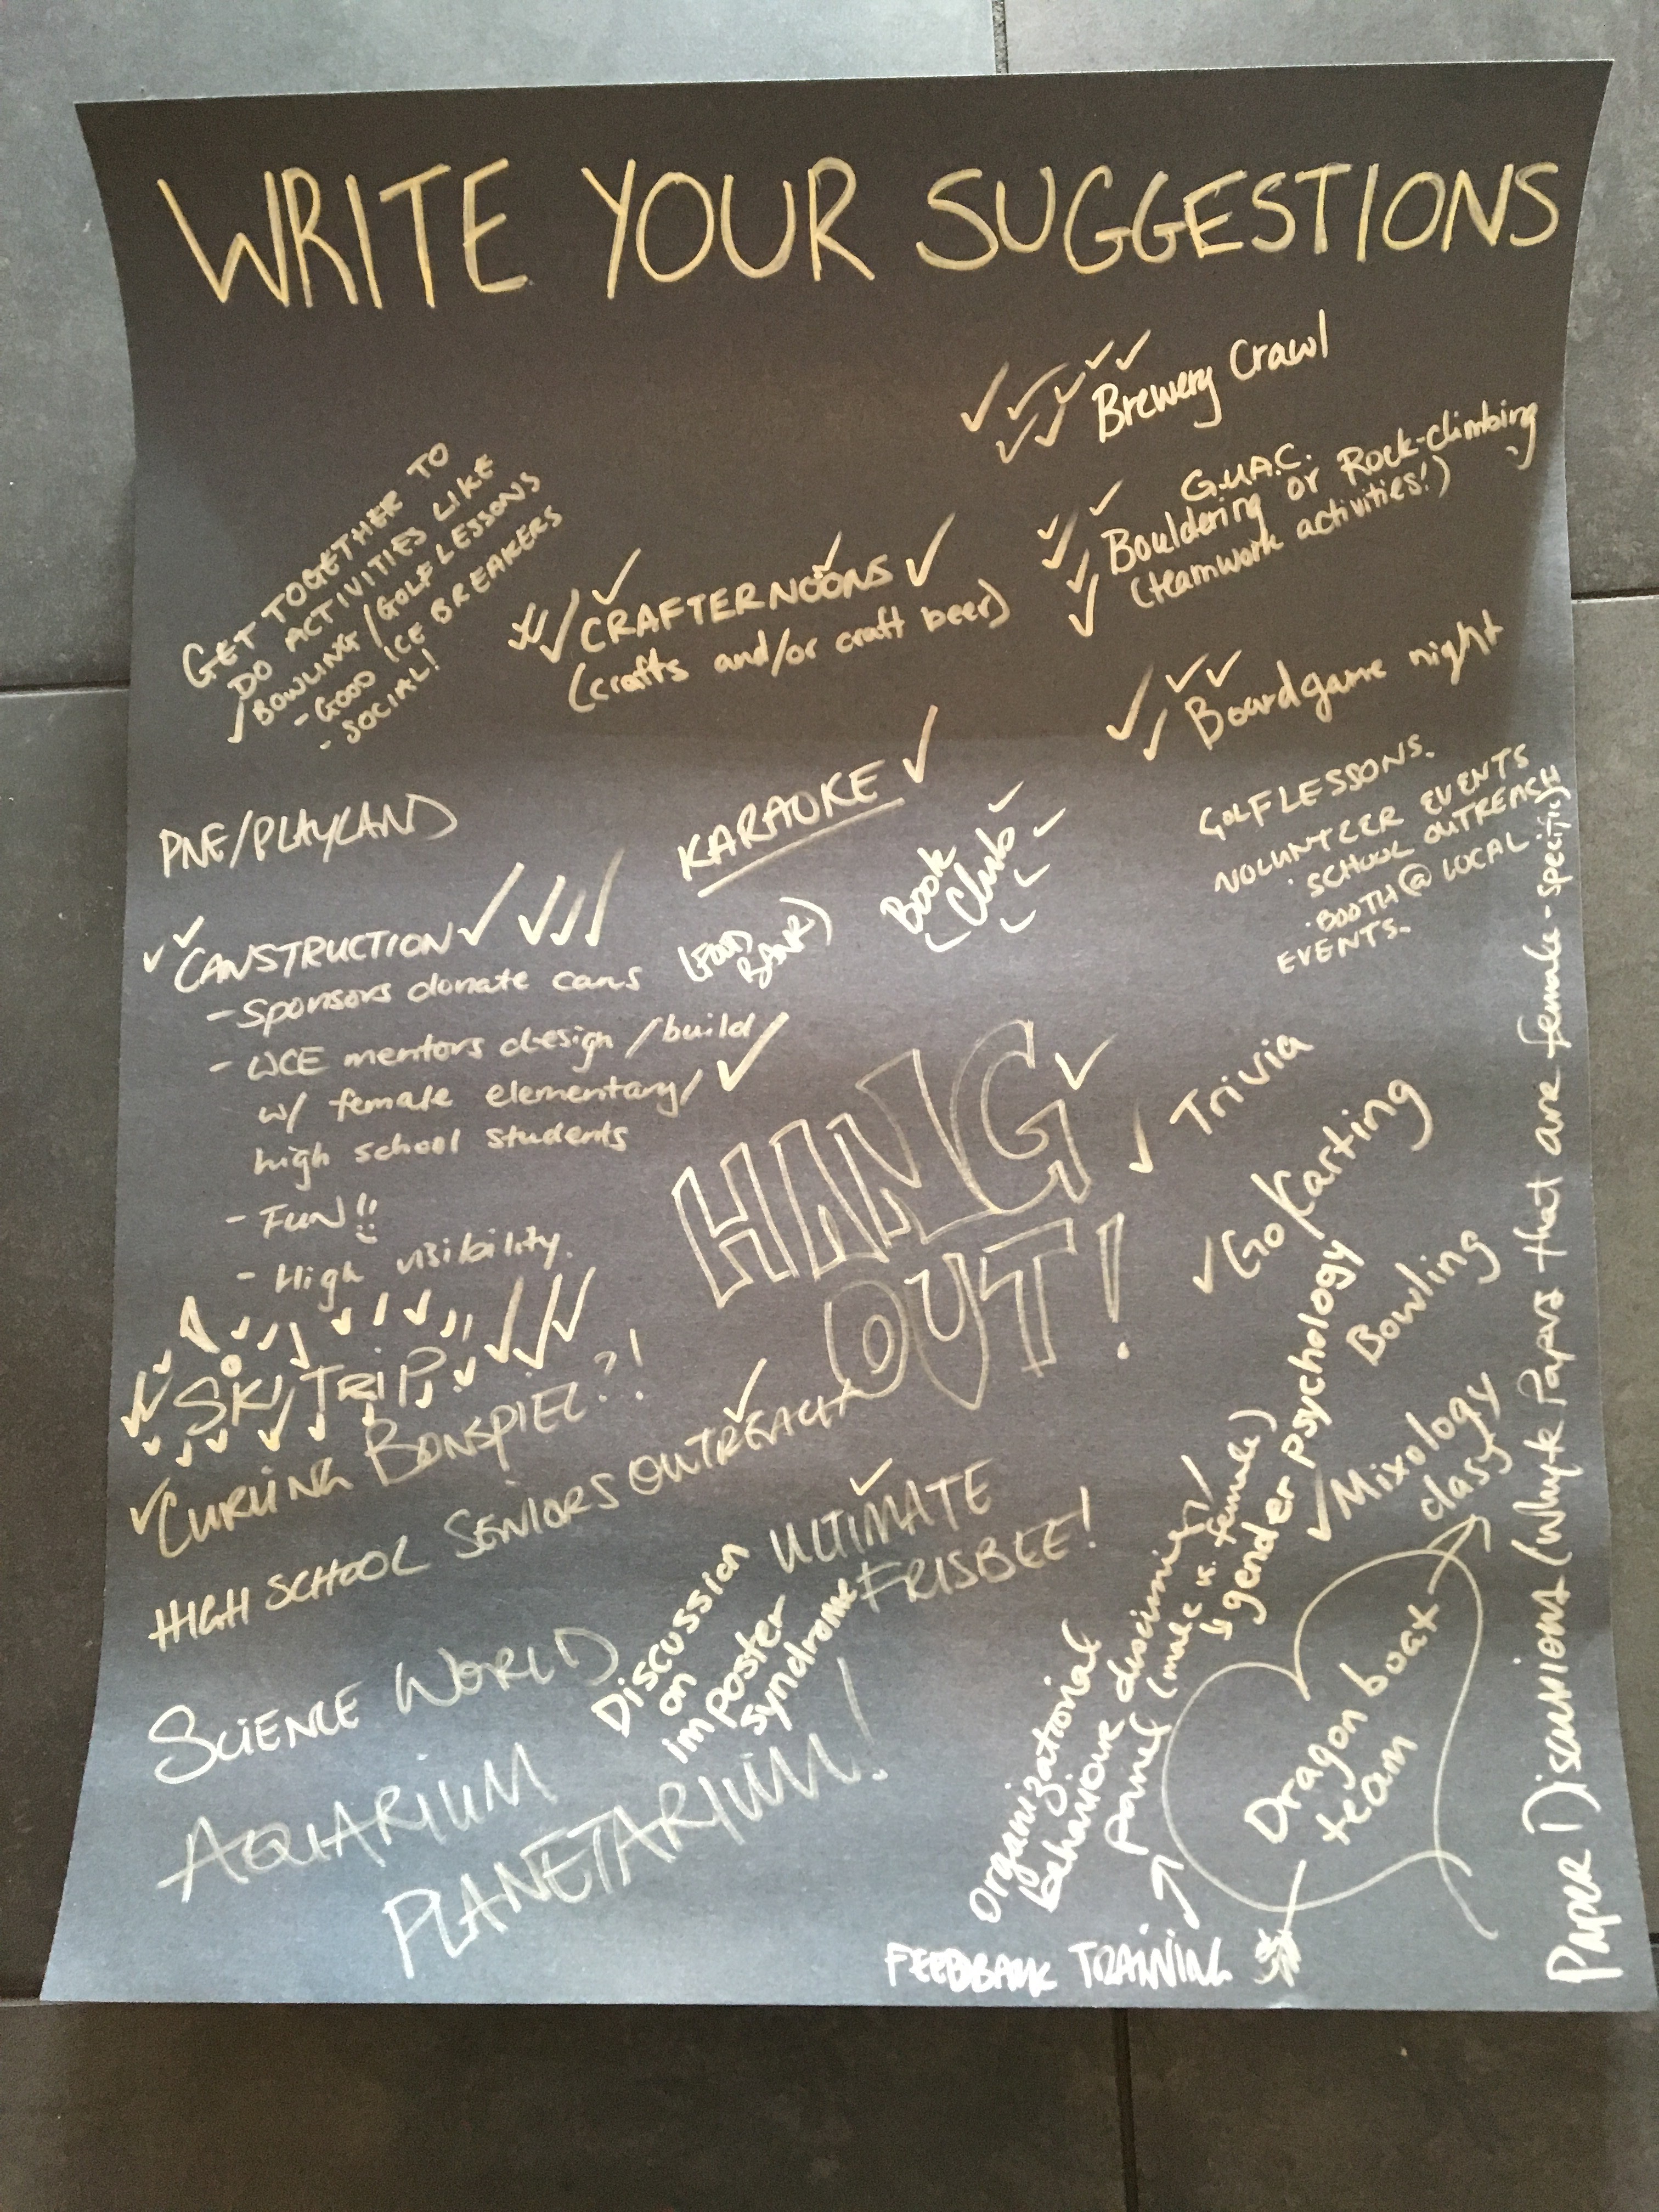 WRITE YOUR SUGGESTIONS
Brewery Crawl
G.U.A.C.
Bouldering or Rock-climbing
(teamwork activities!)
GET TOGETHER TO
DO ACTIVITIES LIKE
BOWLING/GOLF LESSONS
- GOOD ICE BREAKERS
- SOCIAL!
CRAFTERNOONS
(crafts and/or craft beer)
Boardgame night
KARAOKE
PNE/PLAYLAND
GOLF LESSONS.
VOLUNTEER EVENTS
· SCHOOL OUTREACH
· BOOTH @ LOCAL
EVENTS.
Book
Club
CANSTRUCTION
(FOOD
BANK)
- Sponsors donate cans
- WCE mentors design/build
w/ female elementary/
high school students
- Fun!!
- High visibility.
HANG
OUT!
Trivia
Go Karting
Bowling
Mixology
class
SKI TRIP
CURLING BONSPIEL?!
HIGH SCHOOL SENIORS OUTREACH
ULTIMATE
FRISBEE!
Discussion
on
imposter
syndrome
SCIENCE WORLD
AQUARIUM
PLANETARIUM!
Organizational
behaviour
panel
is female)
↳ gender psychology
Dragon boat
team
FEEDBACK TRAINING
Paper Discussions (Whyte Papers that are female-specific)